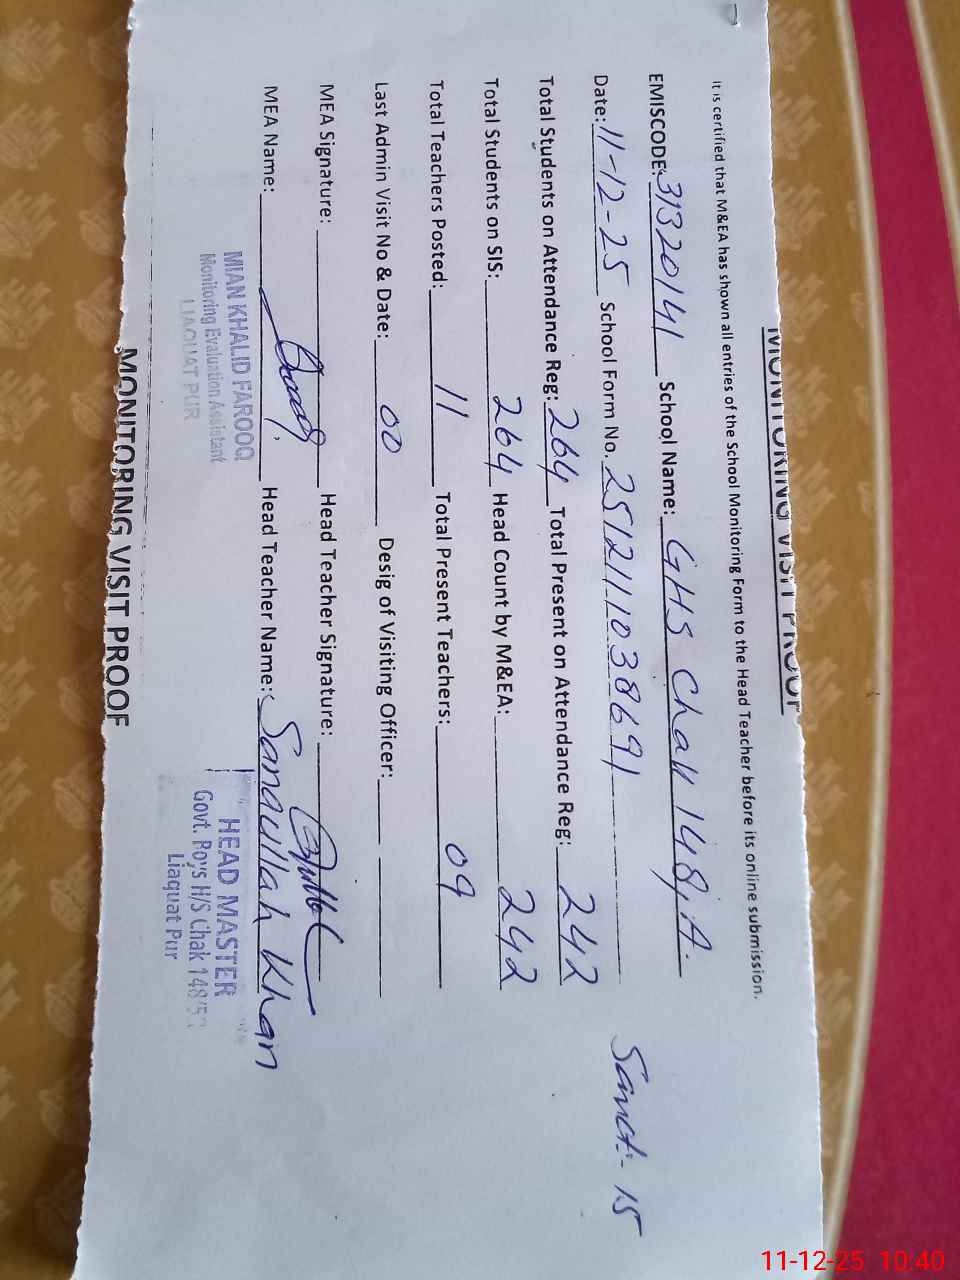 MONITORING VISIT PROOF
It is certified that M&EA has shown all entries of the School Monitoring Form to the Head Teacher before its online submission.
EMISCODE: 31320141 School Name: GHS Chak 148, A.
Date: 11-12-25 School Form No. 2512111038691
Sanct:- 15
Total Students on Attendance Reg: 264 Total Present on Attendance Reg: 242
Total Students on SIS: 264 Head Count by M&EA: 242
Total Teachers Posted: 11 Total Present Teachers: 09
Last Admin Visit No & Date: 00 Desig of Visiting Officer:
MEA Signature: Head Teacher Signature:
MEA Name: Head Teacher Name: Sanaullah Khan
MIAN KHALID FAROOQ
Monitoring Evaluation Assistant
LIAQUAT PUR
HEAD MASTER
Govt. Boys H/S Chak 148/
Liaquat Pur
MONITORING VISIT PROOF
11-12-25 10:40